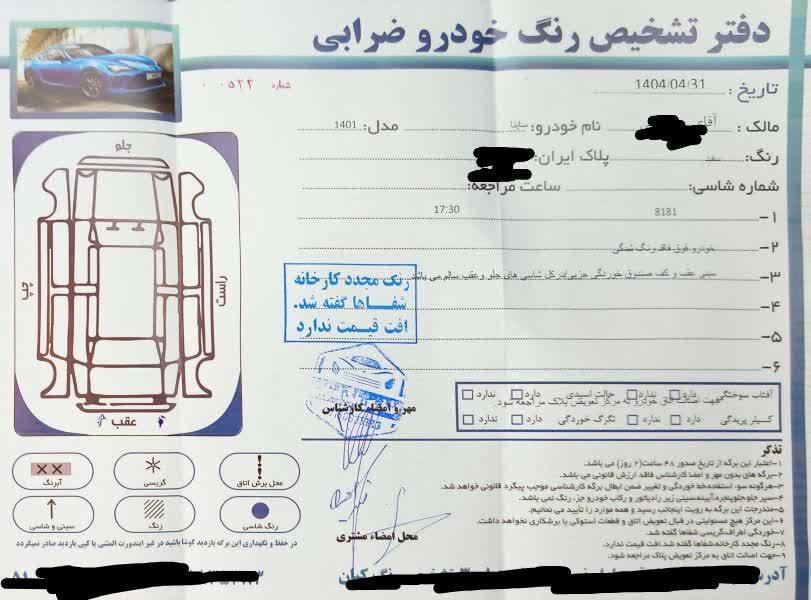 دفتر تشخیص رنگ خودرو ضرابی
شماره ۰۰۵۲۲
تاریخ : 1404/04/31
مالک : آقای نام خودرو: سایپا مدل: 1401
رنگ: سفید پلاک ایران:
شماره شاسی: ساعت مراجعه:
۱– 8181 17:30
۲– خودرو فوق فاقد رنگ شدگی
۳– سینی عقب و کف صندوق خوردگی جزیی/درکل شاسی های جلو و عقب سالم می باشد
رنگ مجدد کارخانه
شفاها گفته شد.
افت قیمت ندارد
۴–
۵–
۶–
مهر و امضاء کارشناس
آفتاب سوختگی دارد ندارد حالت اسیدی دارد ندارد
جهت اصالت اتاق خودرو به مرکز تعویض پلاک مراجعه شود
کسیلر پریدگی دارد ندارد تگرگ خوردگی دارد ندارد
تذکر
۱–اعتبار این برگه از تاریخ صدور ۴۸ ساعت(۲ روز) می باشد.
۲–برگه های بدون مهر و امضا کارشناس فاقد ارزش قانونی می باشد.
۳–هرگونه سوء استفاده،خط خوردگی و تغییر ضمن ابطال برگه کارشناسی موجب پیگرد قانونی خواهد شد.
۴–سپر جلو،جلوپنجره،آیینه،سینی زیر رادیاتور و رکاب خودرو جزء رنگ نمی باشد.
۵–مندرجات این برگه به رویت اینجانب رسید و همه موارد را تأیید می نمائیم.
۶–این مرکز هیچ مسئولیتی در قبال تعویض اتاق و قطعات استوکی یا برشکاری نخواهد داشت.
۷–خوردگی اطراف،گریسی شفاها گفته شد.
۸–رنگ مجدد کارخانه،شفاها گفته شد.افت قیمت ندارد.
۹–جهت اصالت اتاق به مرکز تعویض پلاک مراجعه شود.
محل امضاء مشتری
جلو
چپ
راست
عقب
آبرنگ
گریسی
محل برش اتاق
سینی و شاسی
رنگ
رنگ شاسی
در حفظ و نگهداری این برگه بازدید کوشا باشید در غیر اینصورت المثنی یا کپی بازدید صادر نمیگردد